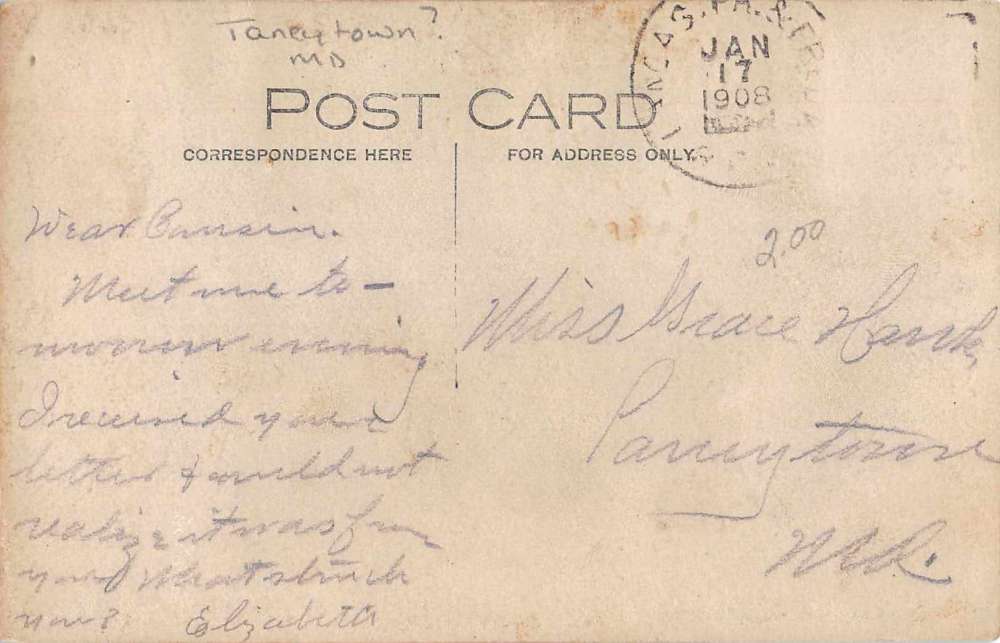 Taneytown?
MD
LANCAS. PA. & FRE
JAN
17
1908
POST CARD
CORRESPONDENCE HERE
FOR ADDRESS ONLY.
2.00
Dear Cousin.
Meet me to-
morrow evening
I received your
letter & could not
realize it was from
you? What struck
you? Elizabeth
Miss Grace Hawk,
Taneytown
Md.